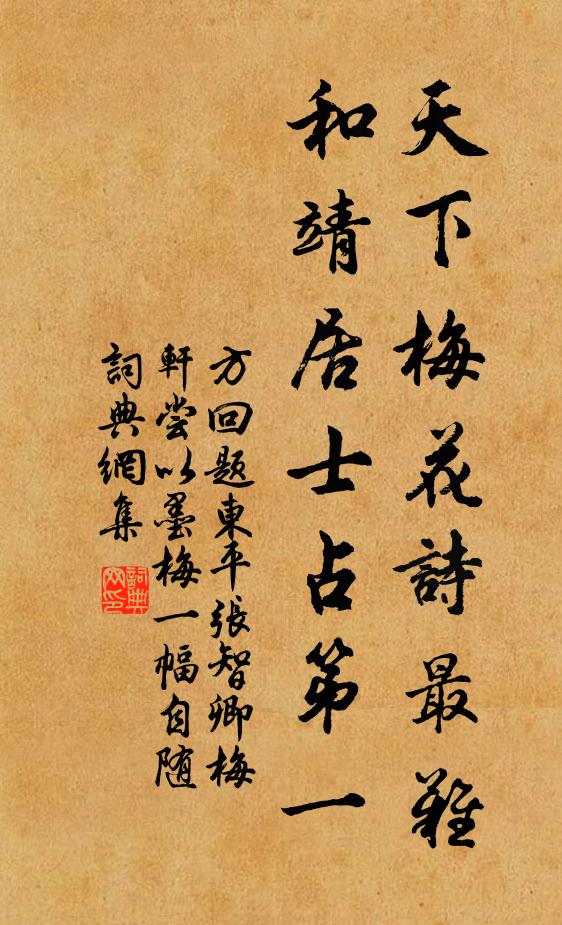 天下梅花詩最難
和靖居士占第一
方回题東平張智卿梅
軒嘗以墨梅一幅自随
詞典網集
詞典网印